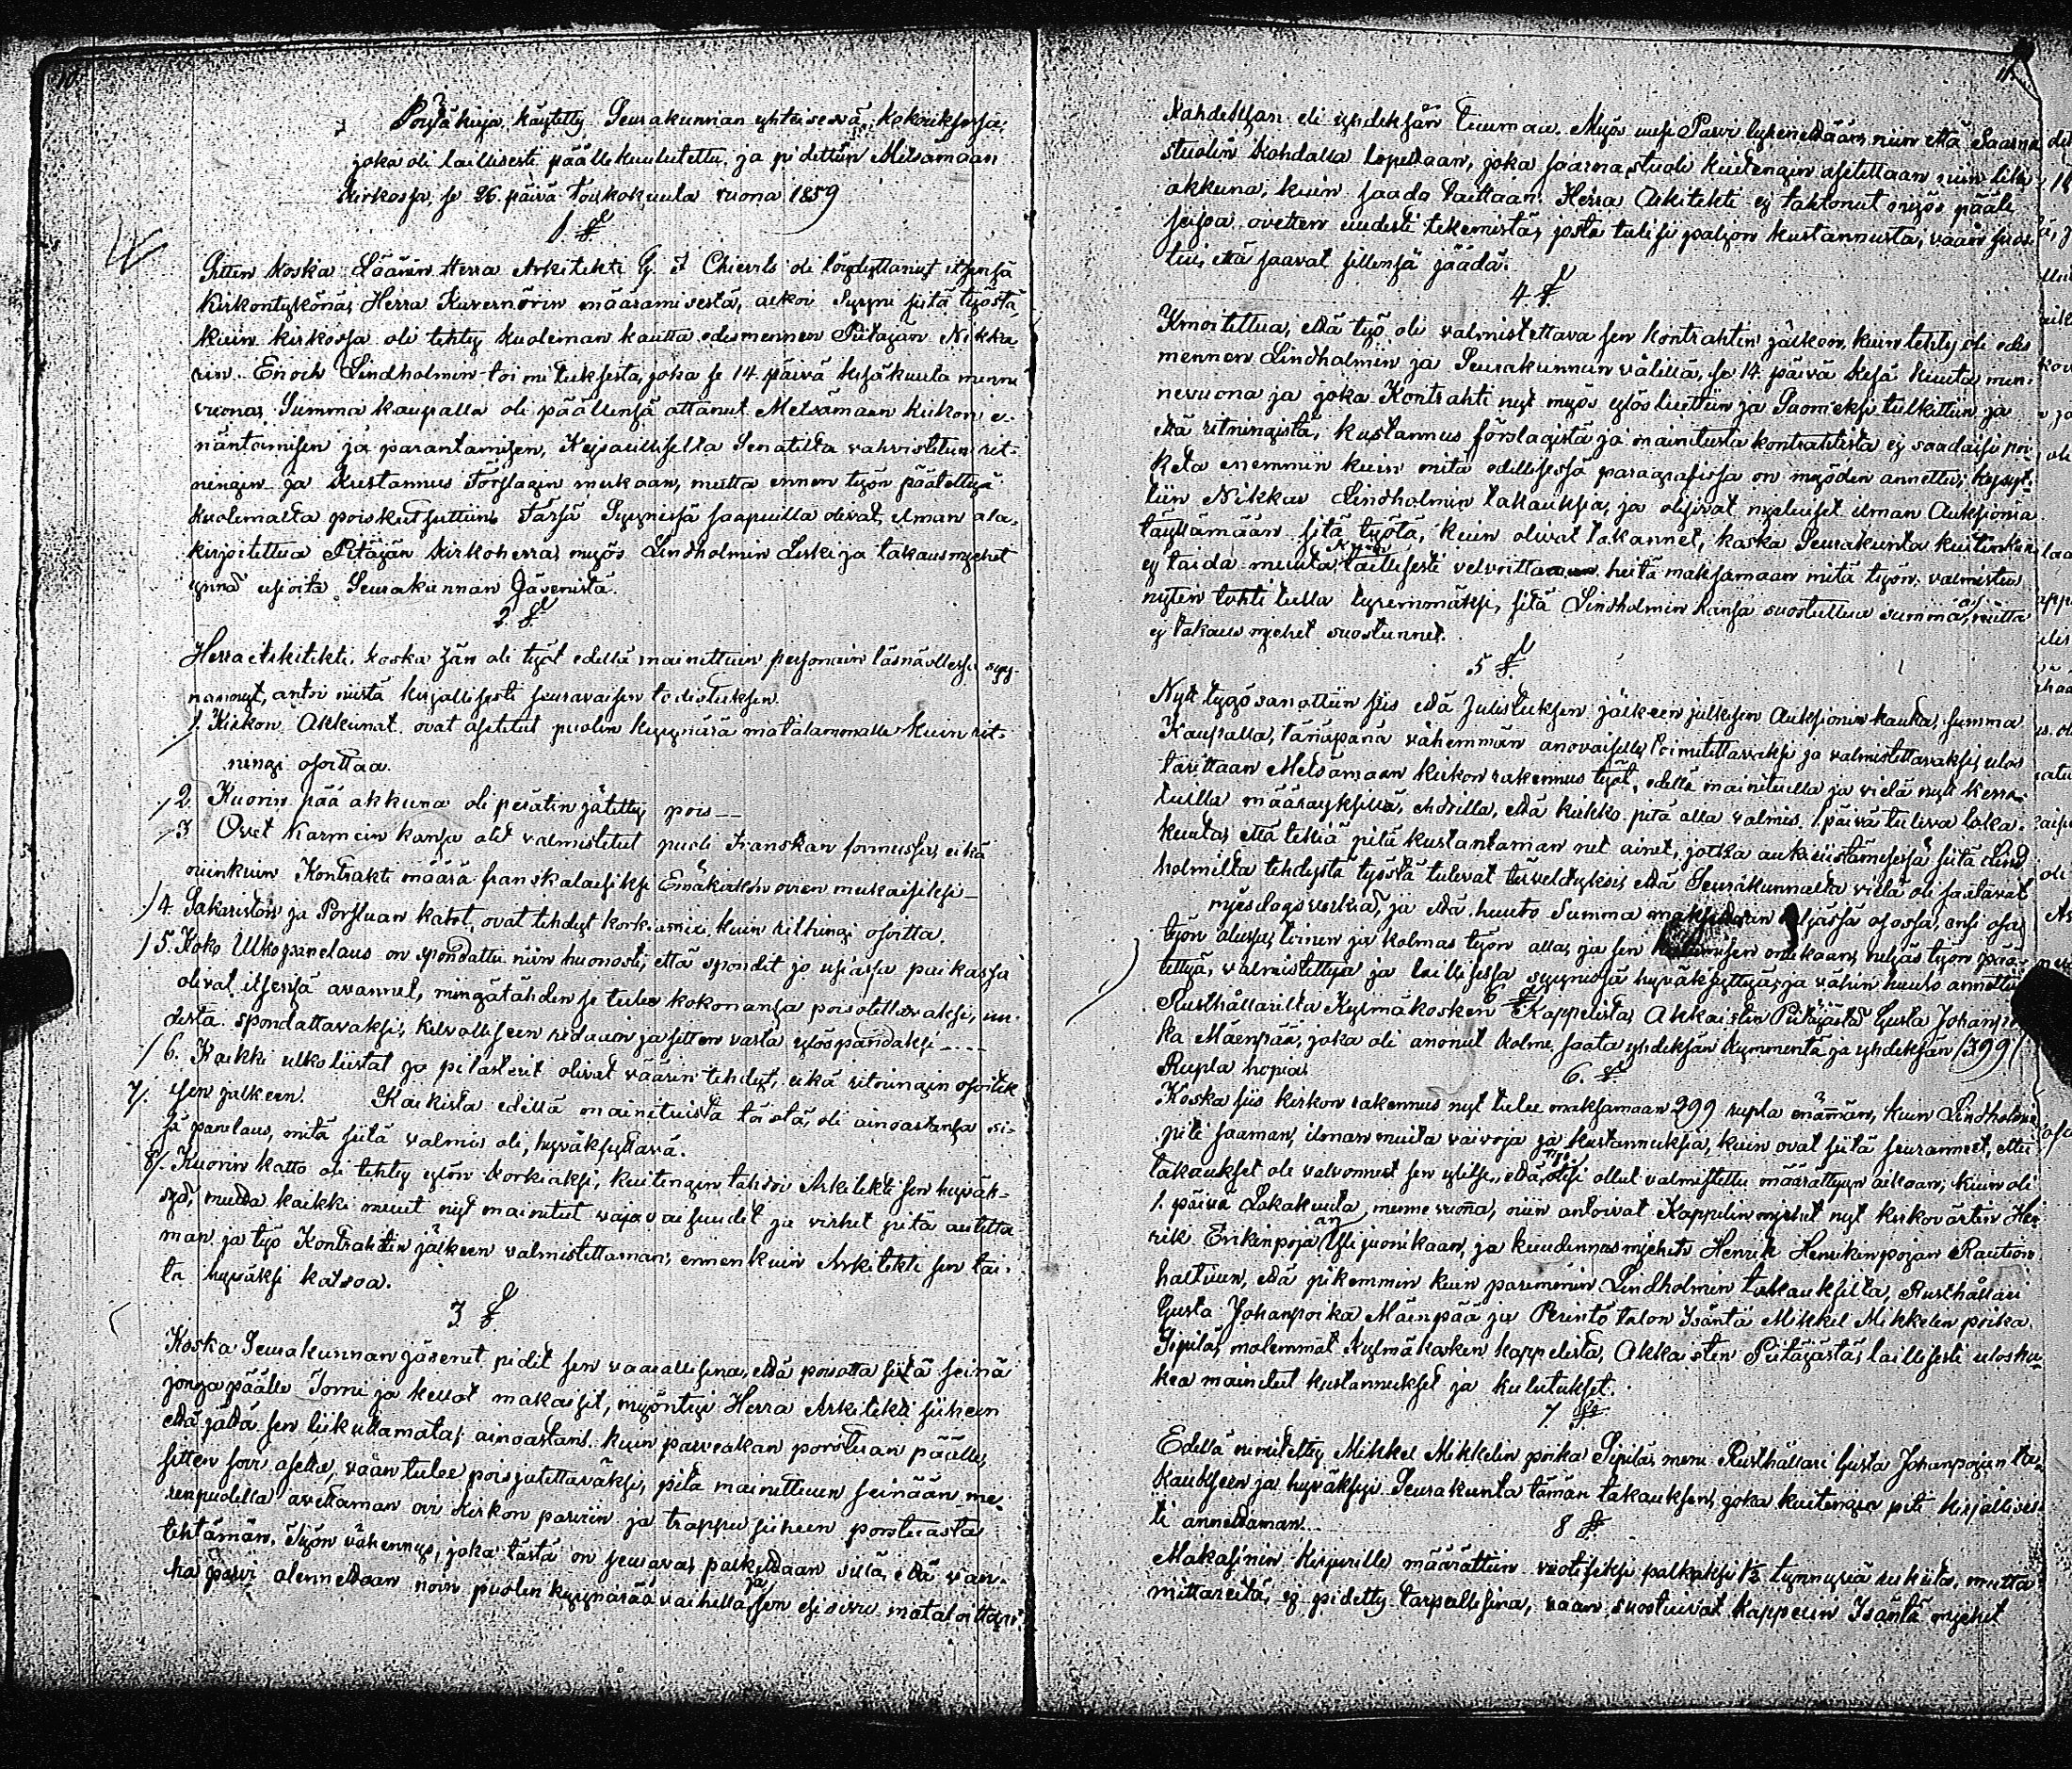 10
Pöytäkirja käytetty Seurakunnan yhteisessä kokouksessa,
joka oli laillisesti päällekuulutettu, ja pidettiin Metsämaan
kirkossa, se 26. päivä Toukokuuta vuona 1859
1. §
Sitten koska Läänin Herra Arkitekti G. T. Chiewitz oli löydyttänyt itsensä
kirkontykönä, Herra Kuvernörin määrämisestä, alkoi Syyni siitä työstä,
kuin kirkossa oli tehty kuoleman kautta edesmennen Pitäjän Nikka
rin Enoch Lindholmin toimituksesta, joka se 14 päivä kesäkuuta menne
vuonna, Summa kaupalla oli päällensä ottanut Metsämaan kirkon e-
näntämisen ja parantamisen, Keysarillisella Senatilta vahvistetun rit-
ningin ja kustannus Förslagin mukaan, mutta ennen työn päätettyä
kuolemalta poiskutsuttiin. Tässä Syynissä saapuilla olivat, ilman ala-
kirjoitettua Pitäjän kirkoherraa, myös Lindholmin Leski ja takausmiehet
ynnä usioita Seurakunnan Jäsenistä.
2. §
Herra Arkitekti, koska hän oli työt edellä mainittuin personain läsnäollessa syy-
nännyt, antoi niistä kirjallisesti seuraavaisen todistuksen.
1. Kirkon Akkunat ovat asetetut puolen kyynärää matalammalle kuin rit-
ningi osoittaa.
2. Kuorin pää akkuna oli perätin jätetty pois —
3 Ovet karmein kansa olit valmistetut puoli Franskan formussa, eikä
niinkuin Kontrakti määrä franskalaisiksi Emäkirkon ovien mukaisiksi —
4. Sakariston ja Porstuan katot, ovat tehdyt korkiamie, kuin ritningi osoitta.
5. Koko Ulkopanelaus on spondattu niin huonosti, että spondit jo usiassa paikassa
olivat itsensä avannet, mingätähden se tulee kokonansa pois otettavaksi, uu-
desta spondattavaksi, kelvolliseen redaan ja sitten vasta ylöspandaksi ——
6. Kaikki ulkoliistat ja pilasterit olivat väärin tehdyt, eikä ritningin osoituk
7. sen jälkeen. Kaikista edellä mainituista töistä, oli ainoastansa si-
sä panelaus, mitä siitä valmis oli, hyväksyttävä.
8. Kuorin katto oli tehty ylön korkiaksi, kuitengin tahtoi Arkitekti sen hyväk-
syä, mutta kaikki muut nyt mainitut vajavaisuudet ja virhet pitä autetta
man ja työ Kontrahtin jälkeen valmistettaman, ennenkuin Arkitekti sen tai-
ta hyväksi katsoa.
3 §
Koska Seurakunnan jäsenet pidit sen vaarallisena, että poisotta sitä seinä
jonga päälle Torni ja kellot makaisit, myöntyi Herra Arkitekti siiheen
että jättä sen liikuttamata; ainoastans kuin parveakan porstuan päälle
sitten sovi asetta, vaan tulee poisjätettäväksi, pitä mainittuun seinään me-
renpuolella avattaman ovi kirkon parviin ja trappu siiheen porstuasta
tehtämän. Työn vähennys, joka tästä on seurava, palkitaan sillä, että van-
ha parvi alennetaan noin puolen kyynärää vaihella, ja sen esisivu mataloittan
11
kahdeksan eli yhdeksän tuumaa. Myös uusi Parvi lyhennetään, niin että Saarna
stuolin kohdalla lopetaan, joka saarna stuoli kuitengin asetettaan niin liki
akkuna, kuin saada taittaan. Herra Arkitekti ej tahtonut myös pääle
seisoa ovetten uudesti tekemistä, josta tulisi paljon kustannusta, vaan suos
tui, että saavat sillensä jäädä.
4 §
Ilmoitettua, että työ oli valmistettava sen kontrahtin jälkeen, kuin tehty oli edes
mennen Lindholmin ja Seurakunnan välillä, se 14. päivä Kesä kuuta men-
nevuona ja joka Kontrahti nyt myös ylösluettiin ja Suomeksi tulkittiin ja
että ritningistä, kustannus förslagista ja mainitusta kontrahtista ej saadaisi poi
keta enemmin kuin mitä edellisessä paragrafissa on myöden annettu; kysyt-
tiin Nikkari Lindholmin takauksia, ja olisivat nyeluiset ilman Auksionia
täyttämään sitä työtä, kuin olivat takannet, koska Seurakunta kuitenkin
ej taida muuta kuin laillisesti velvoittaman heitä maksamaan mitä työn valmistus
nyten tohti tulla kyremmäksi, sitä Lindholmin kansa suostuttua summa, mutta
ej takaus miehet suostunnet.
5 §
Nyt tygösanottiin siis että julistuksen jälkeen julkisen Auksionin kautta, summa
Kaupalla, tänäpänä vähemmän anovaiselle toimitettavaksi ja valmistettavaksi, ulos
tarittaan Metsämaan kirkon rakennus työt, edellä mainituilla ja vielä nyt kerra-
tuilla määräyksillä, ehdoilla, että kirkko pitä alla valmis 1. päivä tuleva Loka-
kuuta, että tekiä pitä kustantaman net ainet, jotka aukiriistämisessä siitä Lind
holmilta tehdystä työstä tulevat turveldyksi, että Seurakunnalta vielä oli saatavat
myös dagsverkiä, ja että huuto Summa maksetaan neljässä osassa, ensi osa
työn alussa, toinen ja kolmas työn alla, ja sen mukaan, neljäs työn pää-
tettyä, valmistettua ja laillisessa syynissä hyväksyttyä, ja vähin huuto annettiin
Rusthållarilta Kylmäkosken Kappelista Akkaisten Pitäjästä Gusta Johanpoi
ka Mäenpää, joka oli anonut kolme sataa yhdeksän kymmentä ja yhdeksän /399/
Rupla hopiaa
6. §
Koska siis kirkon rakennus nyt tulee maksamaan 299 rupla enämän, kuin Lindholmi
piti saaman, ilman muita vaivoja ja kustannuksia, kuin ovat siitä seuranneet, ettei
takaukset ole valvonneet sen ylitse, että työ olisi ollut valmistettu määrättyyn aikaan, kuin oli
1. päivä Lokakuuta menne vuona, niin antoivat Kappelin miehet nyt kirkovärtin Hen
rik Erikinpojan Ylijuonikaan, ja kuudennusmiehen Henrik Henrikinpojan Raution
haltuun, että pikemmin kuin paremmin Lindholmin takauksilta, Rusthållari
Gusta Johanpoika Mäenpää ja Perintö talon Isäntä Mikkel Mikkelin poika
Sipilä, molemmat Kylmäkosken kappelista, Akkaisten Pitäjästä, laillisesti uloshu
kea mainitut kustannukset ja kulutukset.
7 §
Edellä nimitetty Mikkel Mikkelin poika Sipilä, meni Rusthållari Gusta Johanpojan ta-
kaukseen ja hyväksyi Seurakunta tämän takauksen, joka kuitengin piti kirjallises-
ti annettaman.
8 §
Makasinin kirjurille määrättiin vuotiseksi palkaksi 1½ tynnyriä rukiita, mutta
mittareita, ej pidetty tarpeellisina, vaan suostuivat kappelin Isäntä miehet